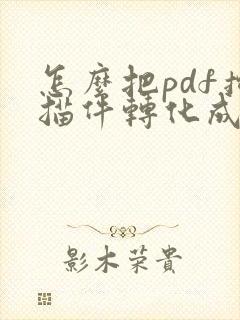 怎麼把pdf掃
描件轉化成
影木荣貴